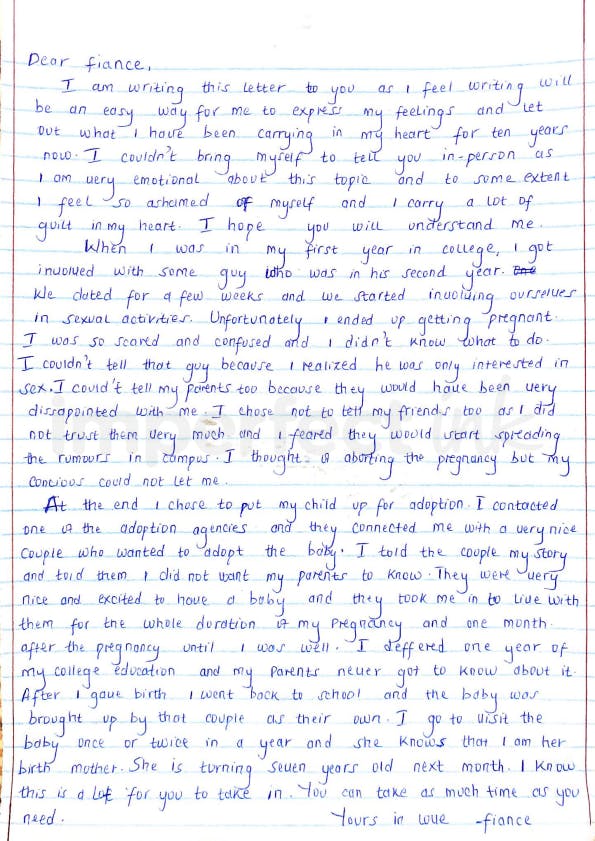 Dear fiance,
I am writing this letter to you as I feel writing will
be an easy way for me to express my feelings and let
out what I have been carrying in my heart for ten years
now. I couldn't bring myself to tell you in-person as
I am very emotional about this topic and to some extent
I feel so ashamed of myself and I carry a lot of
guilt in my heart. I hope you will understand me.
When I was in my first year in college, I got
involved with some guy who was in his second year.
We dated for a few weeks and we started involving ourselves
in sexual activities. Unfortunately I ended up getting pregnant.
I was so scared and confused and I didn't know what to do.
I couldn't tell that guy because I realized he was only interested in
sex. I could't tell my parents too because they would have been very
dissapointed with me. I chose not to tell my friends too as I did
not trust them very much and I feared they would start spreading
the rumours in campus. I thought of aborting the pregnancy but my
concious could not let me.
At the end I chose to put my child up for adoption. I contacted
one of the adoption agencies and they connected me with a very nice
couple who wanted to adopt the baby. I told the couple my story
and told them I did not want my parents to know. They were very
nice and excited to have a baby and they took me in to live with
them for the whole duration of my pregnancy and one month
after the pregnancy until I was well. I deffered one year of
my college education and my parents never got to know about it.
After I gave birth I went back to school and the baby was
brought up by that couple as their own. I go to visit the
baby once or twice in a year and she knows that I am her
birth mother. She is turning seven years old next month. I know
this is a lot for you to take in. You can take as much time as you
need. Yours in love -fiance
imperfect ink